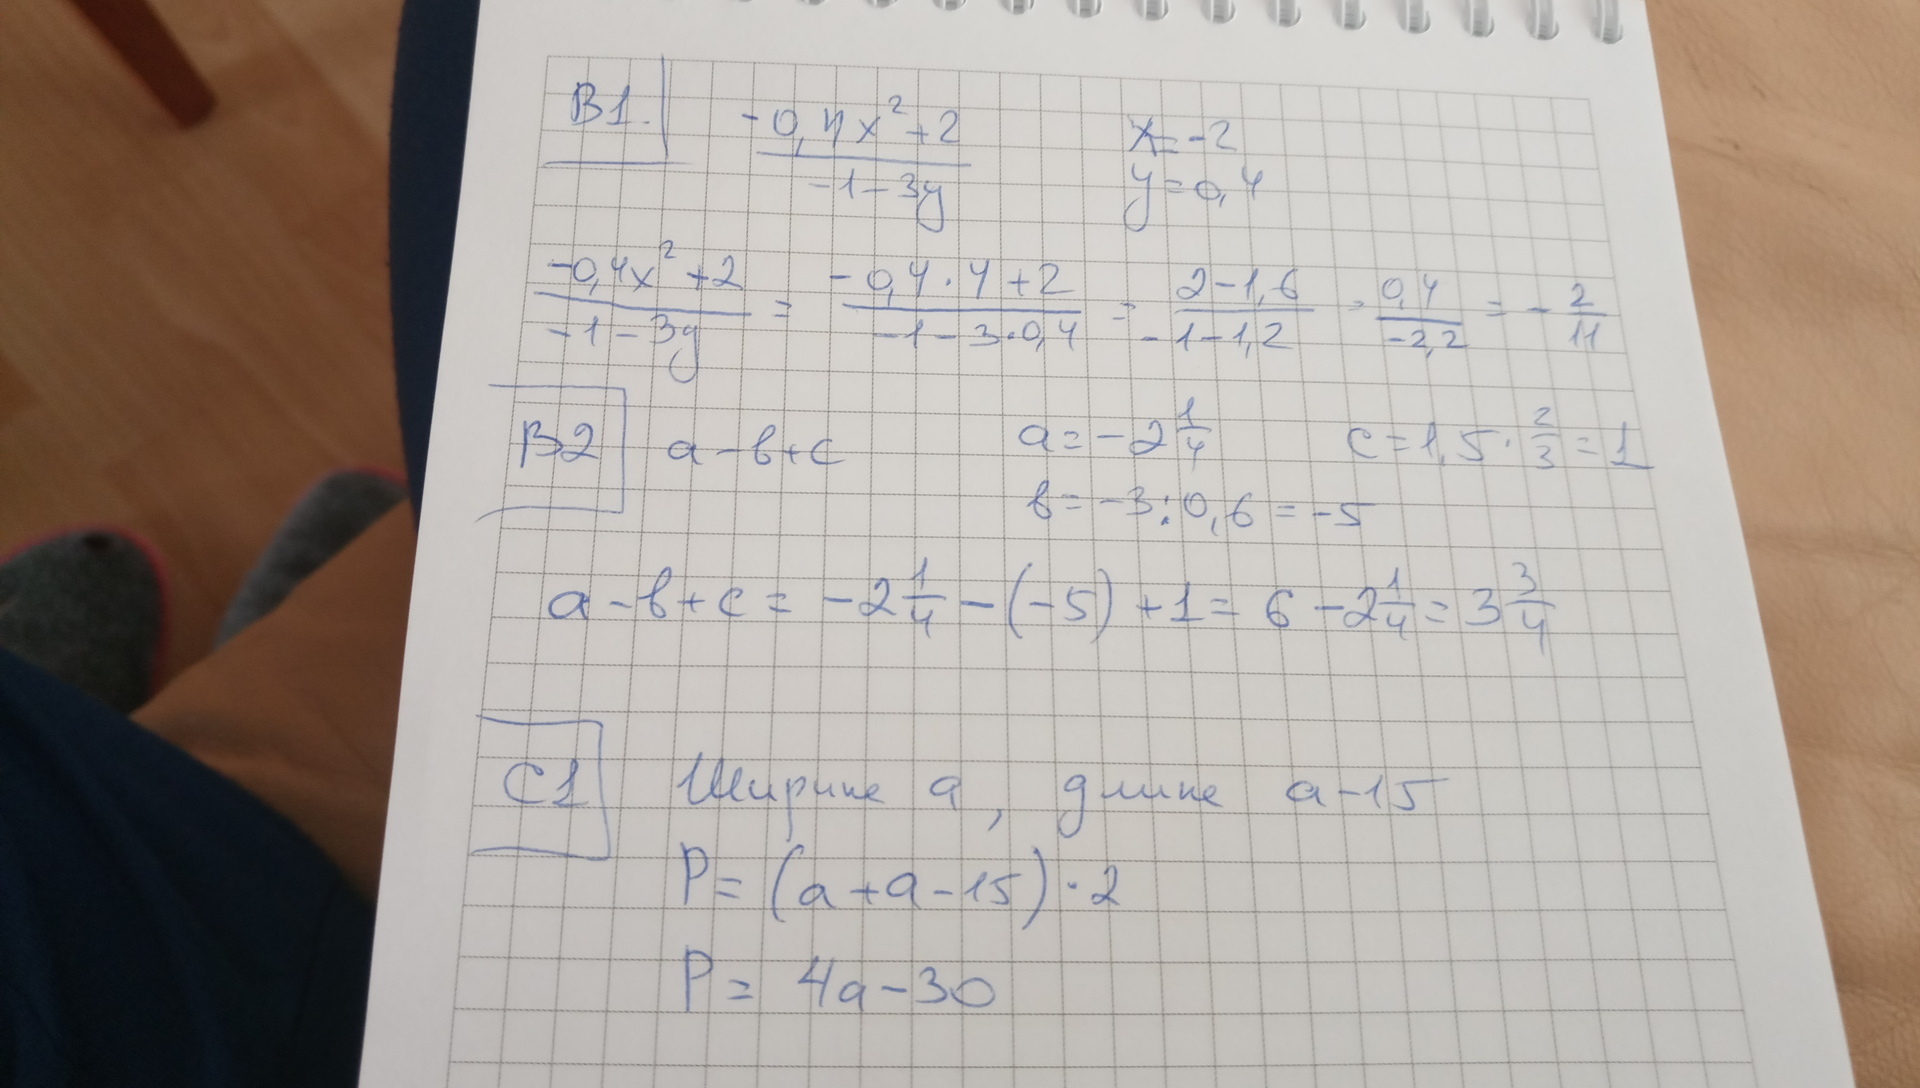 B1. (-0,4x²+2)/(-1-3y) x=-2
y=0,4
(-0,4x²+2)/(-1-3y) = (-0,4·4+2)/(-1-3·0,4) = (2-1,6)/(-1-1,2) = 0,4/(-2,2) = -2/11
B2 a-b+c a=-2 1/4 c=1,5·2/3=1
b=-3:0,6=-5
a-b+c=-2 1/4-(-5)+1=6-2 1/4=3 3/4
C1 Ширина a, длина a-15
P=(a+a-15)·2
P=4a-30